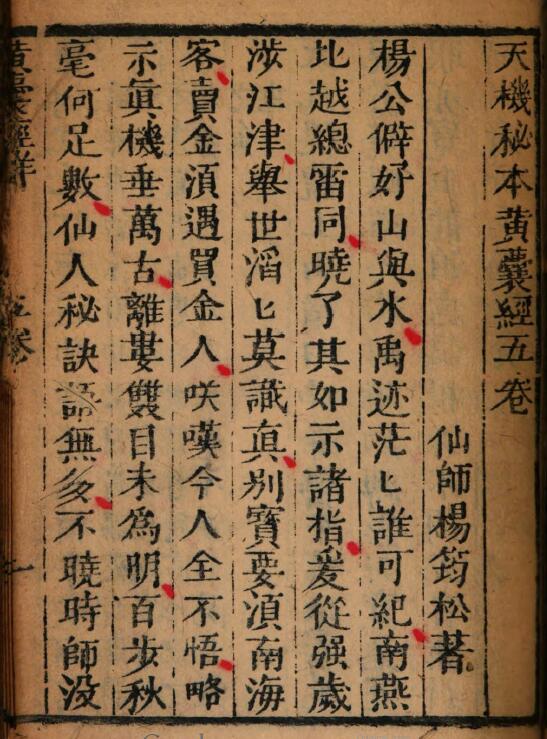 天機秘本黃囊經五卷
仙師楊筠松著
楊公僻好山與水禹迹茫匕誰可紀南燕
北越總雷同曉了其如示諸指爰從强歲
涉江津舉世滔匕莫識真别寶要湏南海
客賣金湏遇買金人咲嘆今人全不悟略
示眞機垂萬古離婁雙目未為明百步秋
毫何足數仙人秘訣語無多不曉時師没
五卷
一